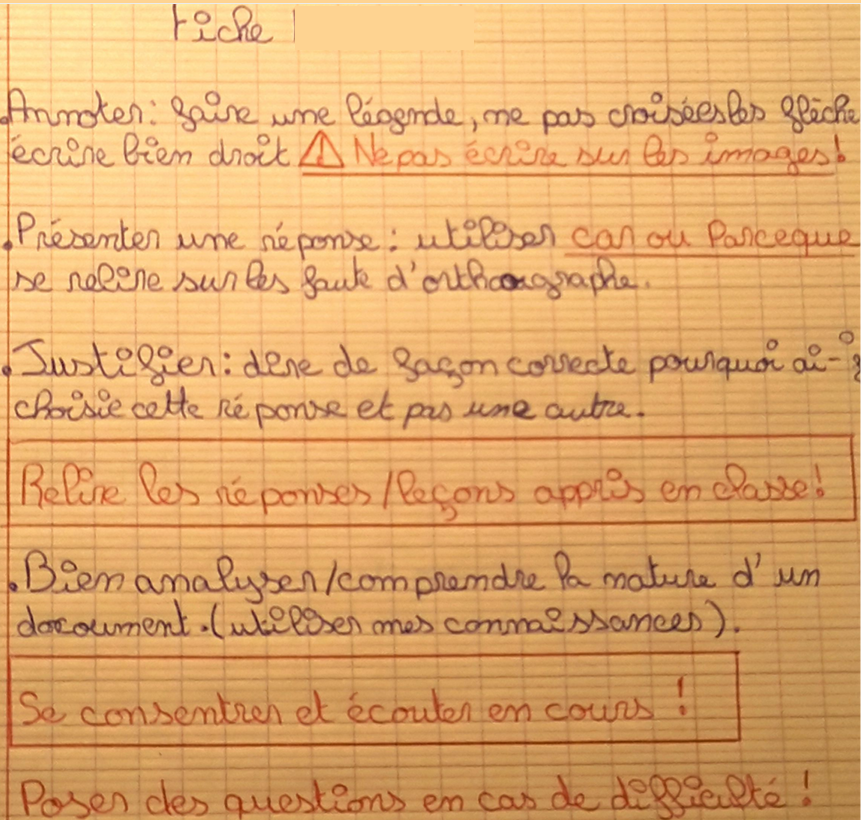 Fiche
Annoter: faire une légende, ne pas croisées les flèche
écrire bien droit ⚠ Ne pas écrire sur les images!
. Présenter une réponse: utiliser car ou Parceque
se relire sur les faute d'orthographe.
. Justifier: dire de façon correcte pourquoi ai-
choisie cette réponse et pas une autre.
Relire les réponses/leçons appris en classe!
. Bien analyser/comprendre la nature d'un
document. (utiliser mes connaissances).
Se consentrer et écouter en cours !
Poser des questions en cas de difficulté !